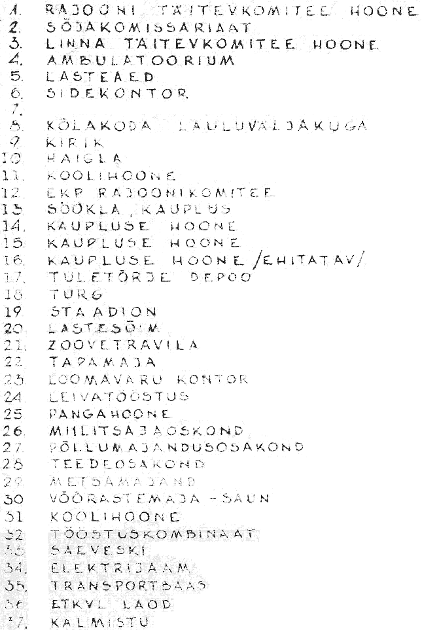 1. RAJOONI TÄITEVKOMITEE HOONE
2. SÕJAKOMISSARIAAT
3. LINNA TÄITEVKOMITEE HOONE
4. AMBULATOORIUM
5. LASTEAED
6. SIDEKONTOR
7.
8. KÕLAKODA LAULUVÄLJAKUGA
9. KIRIK
10 HAIGLA
11. KOOLIHOONE
12. EKP RAJOONIKOMITEE
13 SÖÖKLA, KAUPLUS
14. KAUPLUSE HOONE
15. KAUPLUSE HOONE
16. KAUPLUSE HOONE /EHITATAV/
17. TULETÕRJE DEPOO
18 TURG
19. STAADION
20. LASTESÕIM
21. ZOOVETRAVILA
22 TAPAMAJA
23 LOOMAVARU KONTOR
24 LEIVATÖÖSTUS
25 PANGAHOONE
26. MIILITSAJAOSKOND
27. PÕLLUMAJANDUSOSAKOND
28 TEEDEOSAKOND
29 METSAMAJAND
30 VÕÕRASTEMAJA - SAUN
31 KOOLIHOONE
32 TÖÖSTUSKOMBINAAT
33 SAEVESKI
34. ELEKTRIJAAM
35. TRANSPORTBAAS
36 ETKVL LAOD
37. KALMISTU